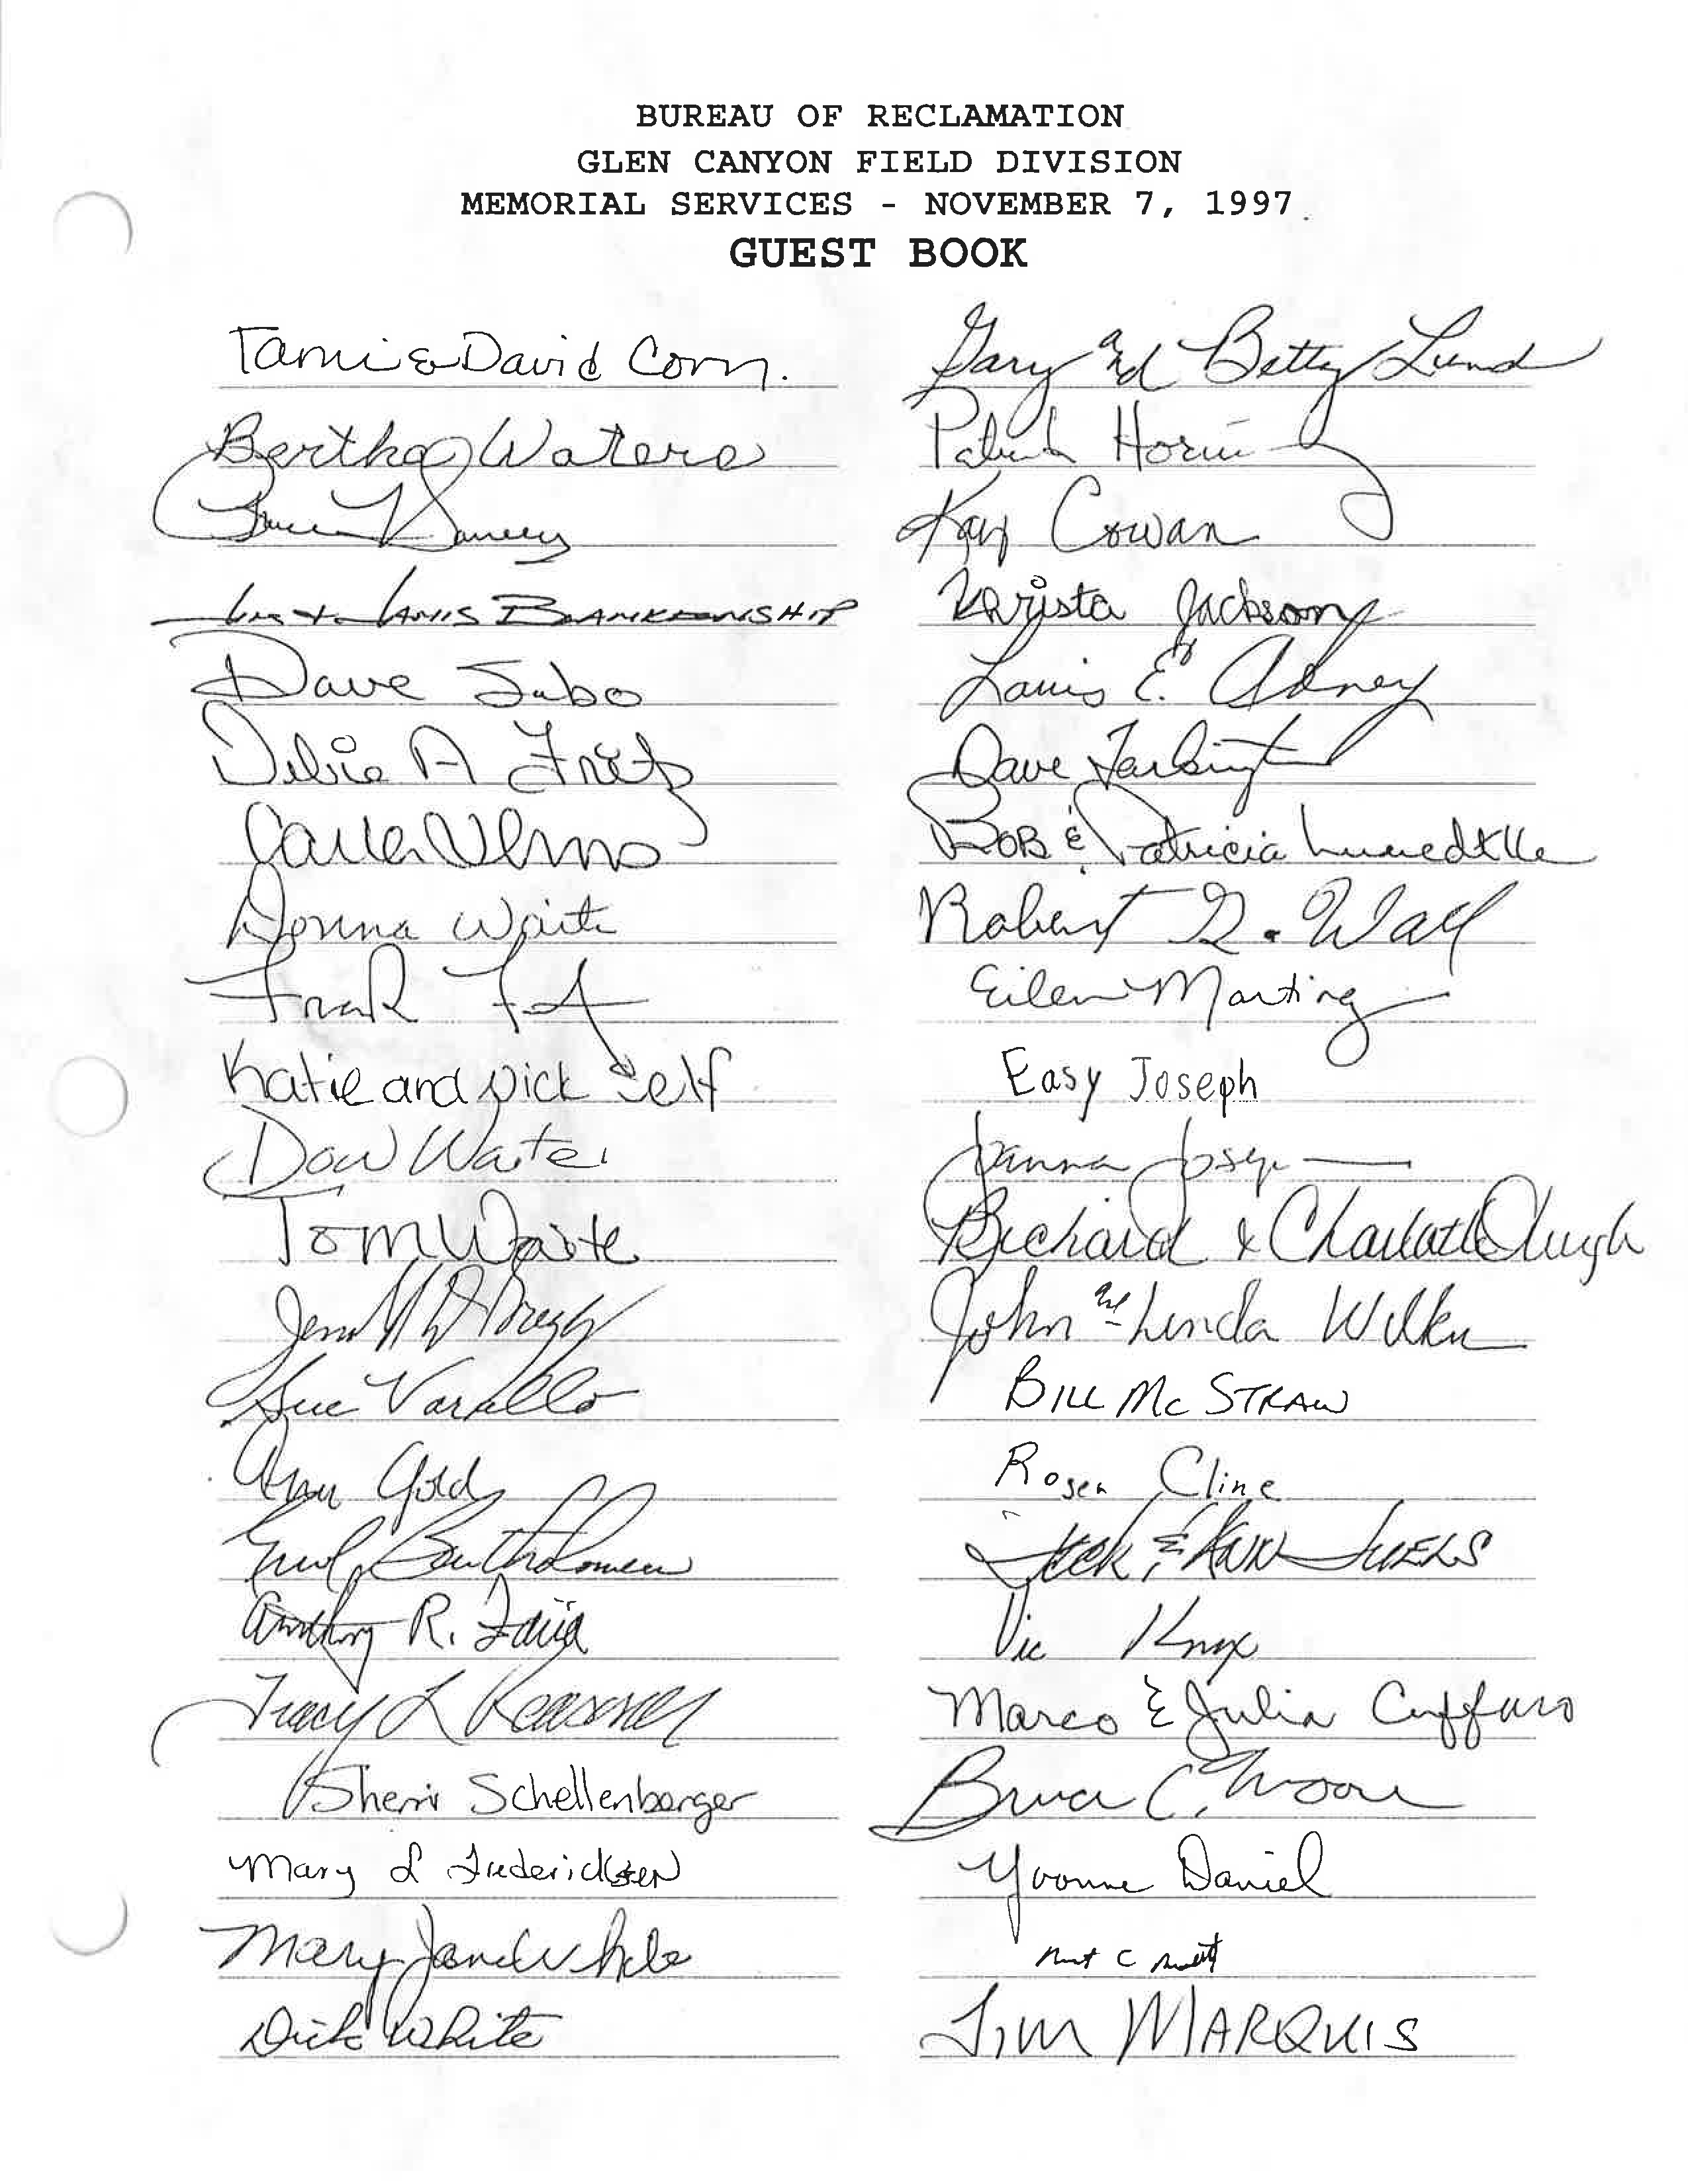 BUREAU OF RECLAMATION
GLEN CANYON FIELD DIVISION
MEMORIAL SERVICES - NOVEMBER 7, 1997
GUEST BOOK
Tami & David Corn.
Bertha Waters
Bruce
Janis BLANKENSHIP
Dave Sabo
Debie A Fritz
Carla
Donna Waite
Frank
Katie and Dick Self
Dow Waite
Tom Waite
Sue Varallo
Ann Gold
Bartholomew
Anthony R.
Tracy L
Sherri Schellenbarger
Mary L Fredericksen
Mary Jane White
Dick White
Gary and Betty Lund
Patrick
Kay Cowan
Krista Jackson
E. Adney
Dave
Bob & Patricia
Robert G. Wall
Eileen Martinez
Easy Joseph
Joseph
Richard & Charlotte Clough
John and Linda
BILL McSTRAW
Roger Cline
Jack & Ann
Vic Knox
Marco & Julia Cuffaro
Bruce C. Moore
Yvonne Daniel
C
JIM MARQUIS